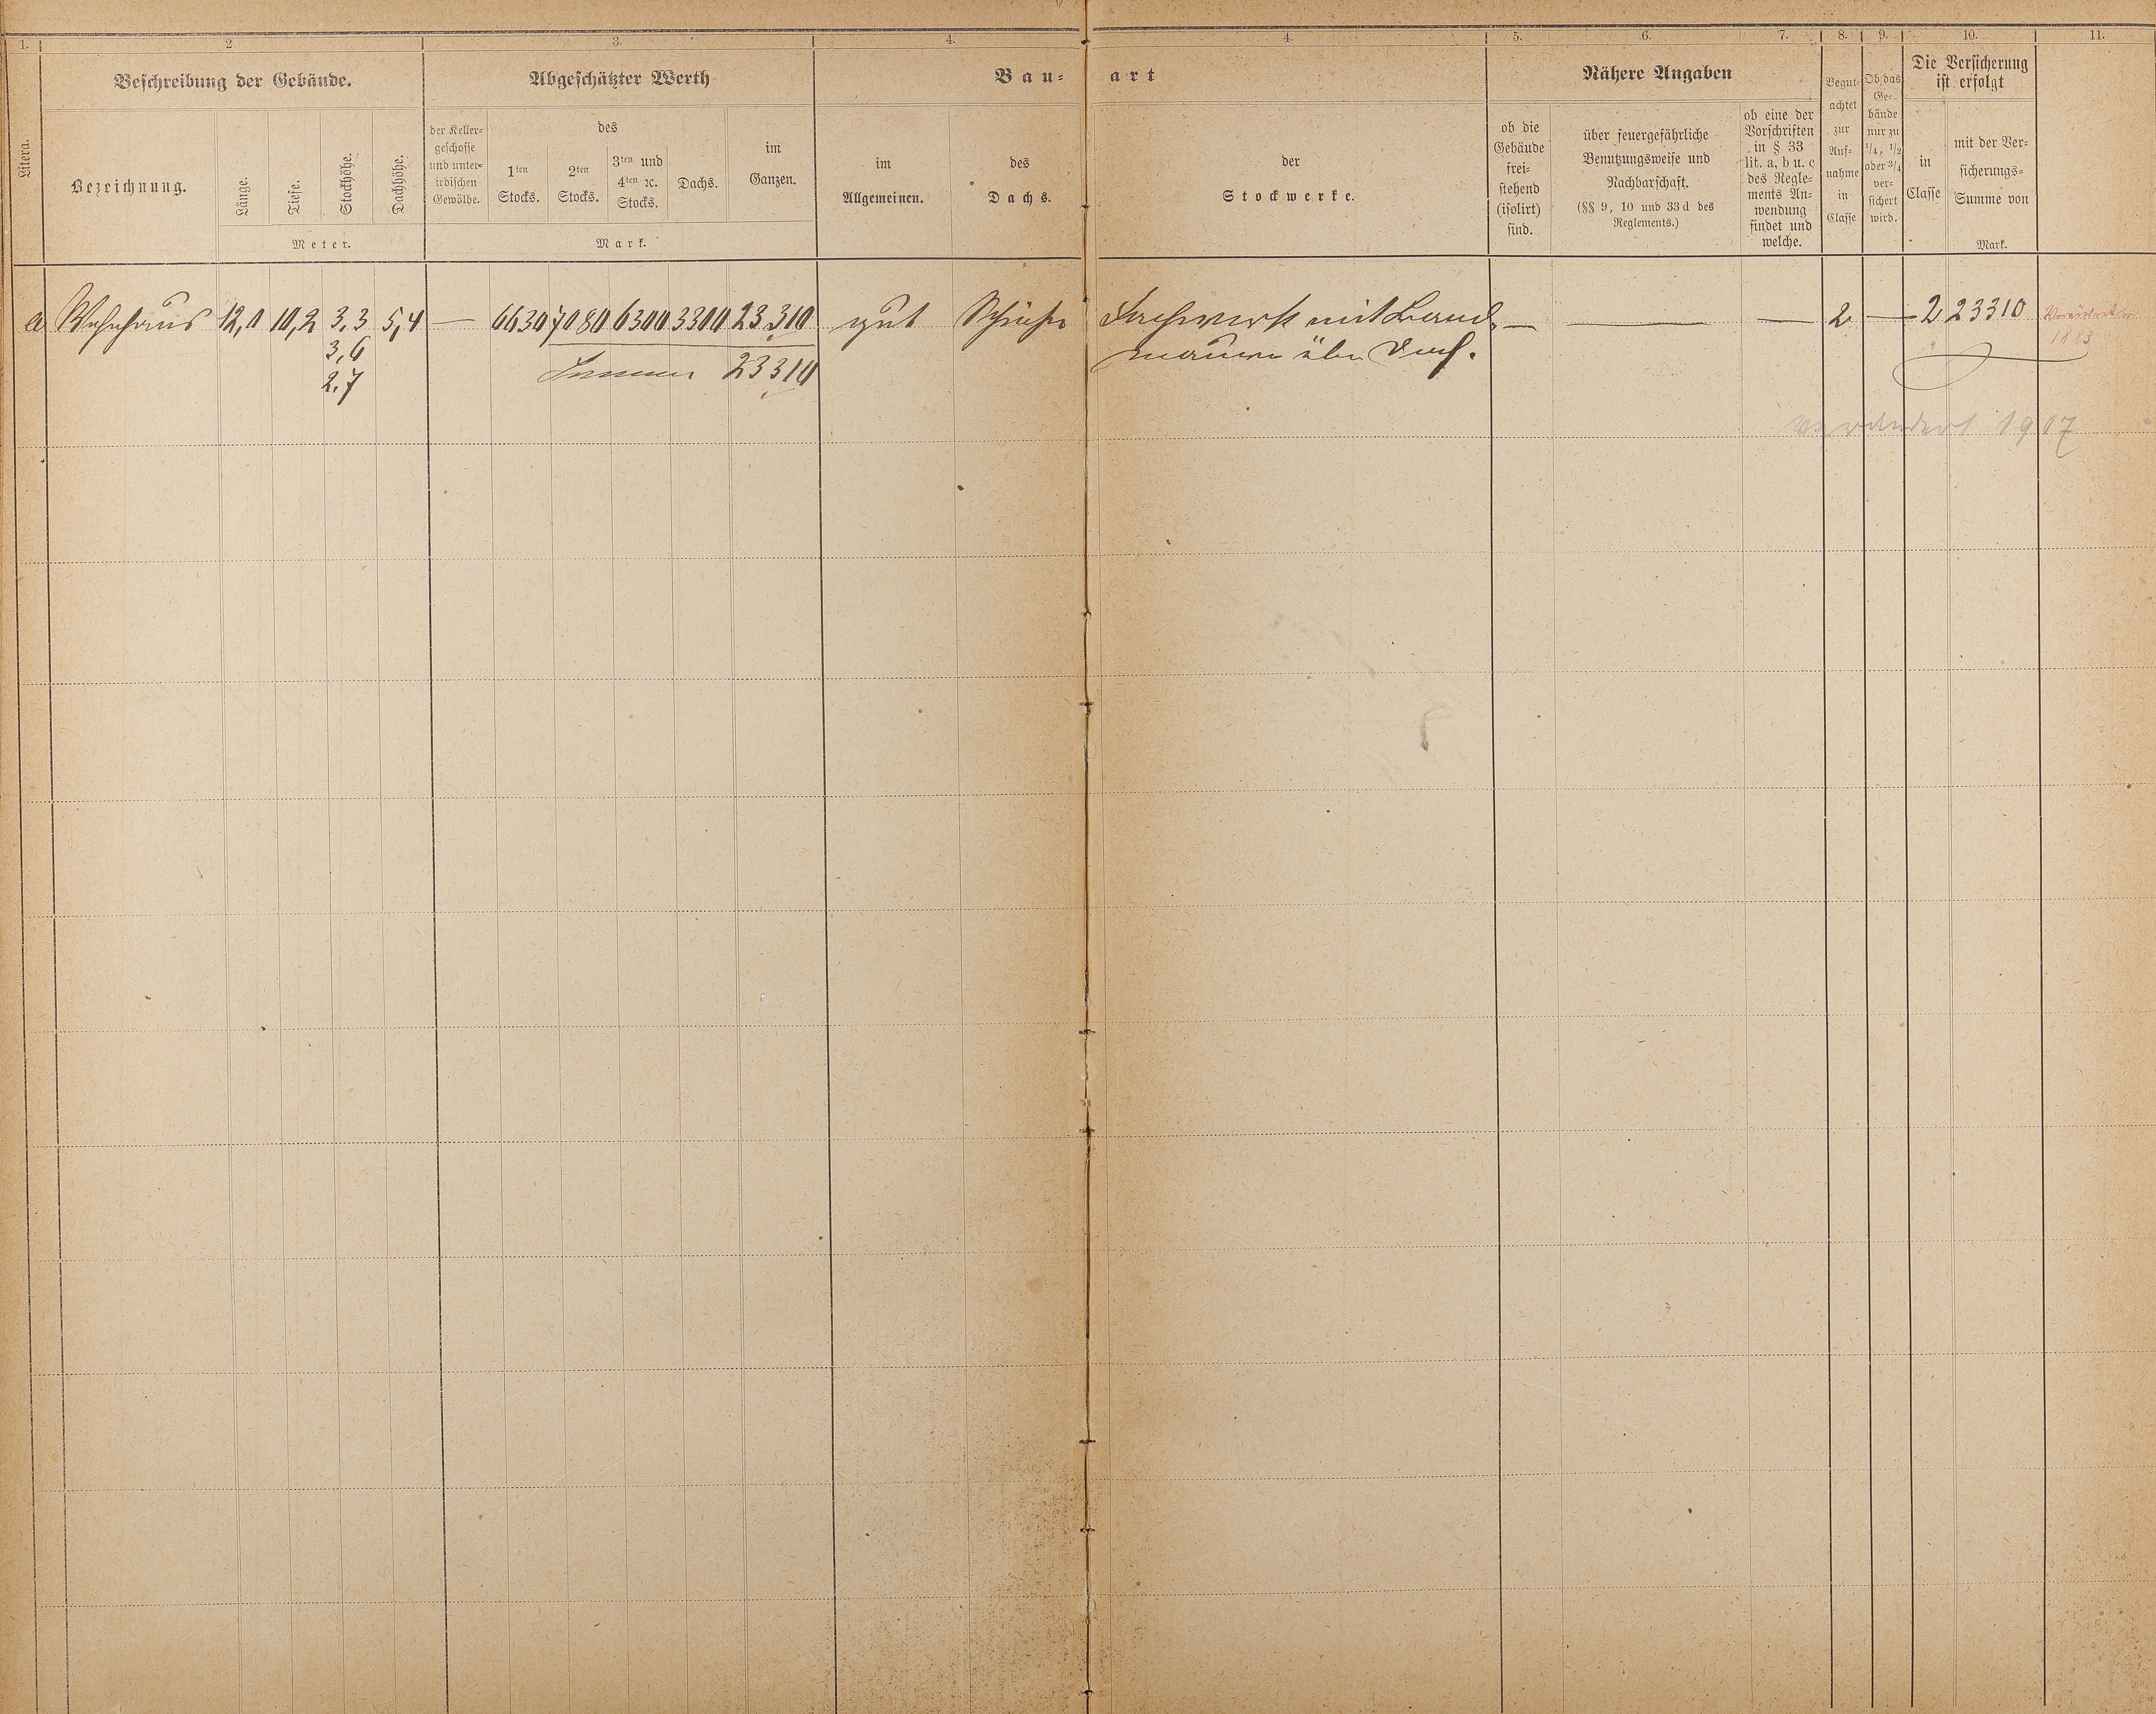 1. 2 3. 4. 4. 5. 6. 7. 8. 9. 10. 11.
Litera.
Beschreibung der Gebäude.
Bezeichnung.
Länge.
Tiefe.
Stockhöhe.
Dachhöhe.
Meter.
Abgeschätzter Werth
der Keller-
geschosse
und unter-
irdischen
Gewölbe.
des
1ten
Stocks.
2ten
Stocks.
3ten und
4ten ꝛc.
Stocks.
Dachs.
im
Ganzen.
Mark.
Bau- art
im
Allgemeinen.
des
Dachs.
der
Stockwerke.
Nähere Angaben
ob die
Gebäude
frei-
stehend
(isolirt)
sind.
über feuergefährliche
Benutzungsweise und
Nachbarschaft.
(§§ 9, 10 und 33 d des
Reglements.)
ob eine der
Vorschriften
in § 33
lit. a, b u. c
des Regle-
ments An-
wendung
findet und
welche.
Begut-
achtet
zur
Auf-
nahme
in
Classe
Ob das
Ge-
bäude
nur zu
1/4, 1/2
oder 3/4
ver-
sichert
wird.
Die Versicherung
ist erfolgt
in
Classe
mit der Ver-
sicherungs-
Summe von
Mark.
a Wohnhaus 12,0 10,2 3,3 5,4 — 6630 7080 6300 3300 23310 gut Schiefer Fachwerk mit Brand- — — — 2 — 2 23310
3,6 mauern über Dach. 1883
2,7 Summa 23310
verändert 1907